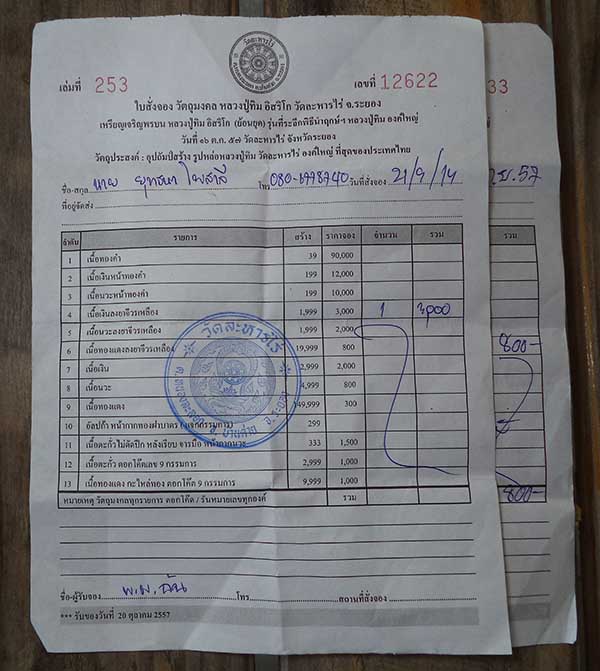 วัดละหารไร่
เล่มที่ 253 เลขที่ 12622 33
ใบสั่งจอง วัตถุมงคล หลวงปู่ทิม อิสริโก วัดละหารไร่ จ.ระยอง
เหรียญเจริญพรบน หลวงปู่ทิม อิสริโก (ย้อนยุค) รุ่นที่ระลึกพิธีนำฤกษ์ฯ หลวงปู่ทิม องค์ใหญ่
วันที่ ๑๖ ต.ค. ๕๗ วัดละหารไร่ จังหวัดระยอง
วัตถุประสงค์ : อุปถัมป์สร้าง รูปหล่อหลวงปู่ทิม วัดละหารไร่ องค์ใหญ่ ที่สุดของประเทศไทย
ชื่อ-สกุล นาย ยุทธนา โทร 080- วันที่สั่งจอง 21/9/14 .ย.57
ที่อยู่จัดส่ง
ลำดับ รายการ สร้าง ราคาจอง จำนวน รวม รวม
1 เนื้อทองคำ 39 90,000
2 เนื้อเงินหน้าทองคำ 199 12,000
3 เนื้อนวะหน้าทองคำ 199 10,000
4 เนื้อเงินลงยาจีวรเหลือง 1,999 3,000 1 3,000
5 เนื้อนวะลงยาจีวรเหลือง 1,999 2,000
6 เนื้อทองแดงลงยาจีวรเหลือง 19,999 800 800-
7 เนื้อเงิน 2,999 2,000
8 เนื้อนวะ 4,999 800
9 เนื้อทองแดง 49,999 300
10 อัลปาก้า หน้ากากทองฝาบาตร (แจกกรรมการ) 299
11 เนื้อตะกั่วไม่ตัดปีก หลังเรียบ จารมือ หน้ากากนวะ 333 1,500
12 เนื้อตะกั่ว ตอกโค๊ตเลข 9 กรรมการ 2,999 1,000
13 เนื้อทองแดง กะไหล่ทอง ตอกโค๊ต 9 กรรมการ 9,999 1,000
หมายเหตุ วัตถุมงคลทุกรายการ ตอกโค๊ต / รันหมายเลขทุกองค์ รวม 800-
วัดละหารไร่
ต.หนองละลอก อ.บ้านค่าย จ.ระยอง
ชื่อ-ผู้รับจอง โทร. สถานที่สั่งจอง
*** รับของวันที่ 20 ตุลาคม 2557